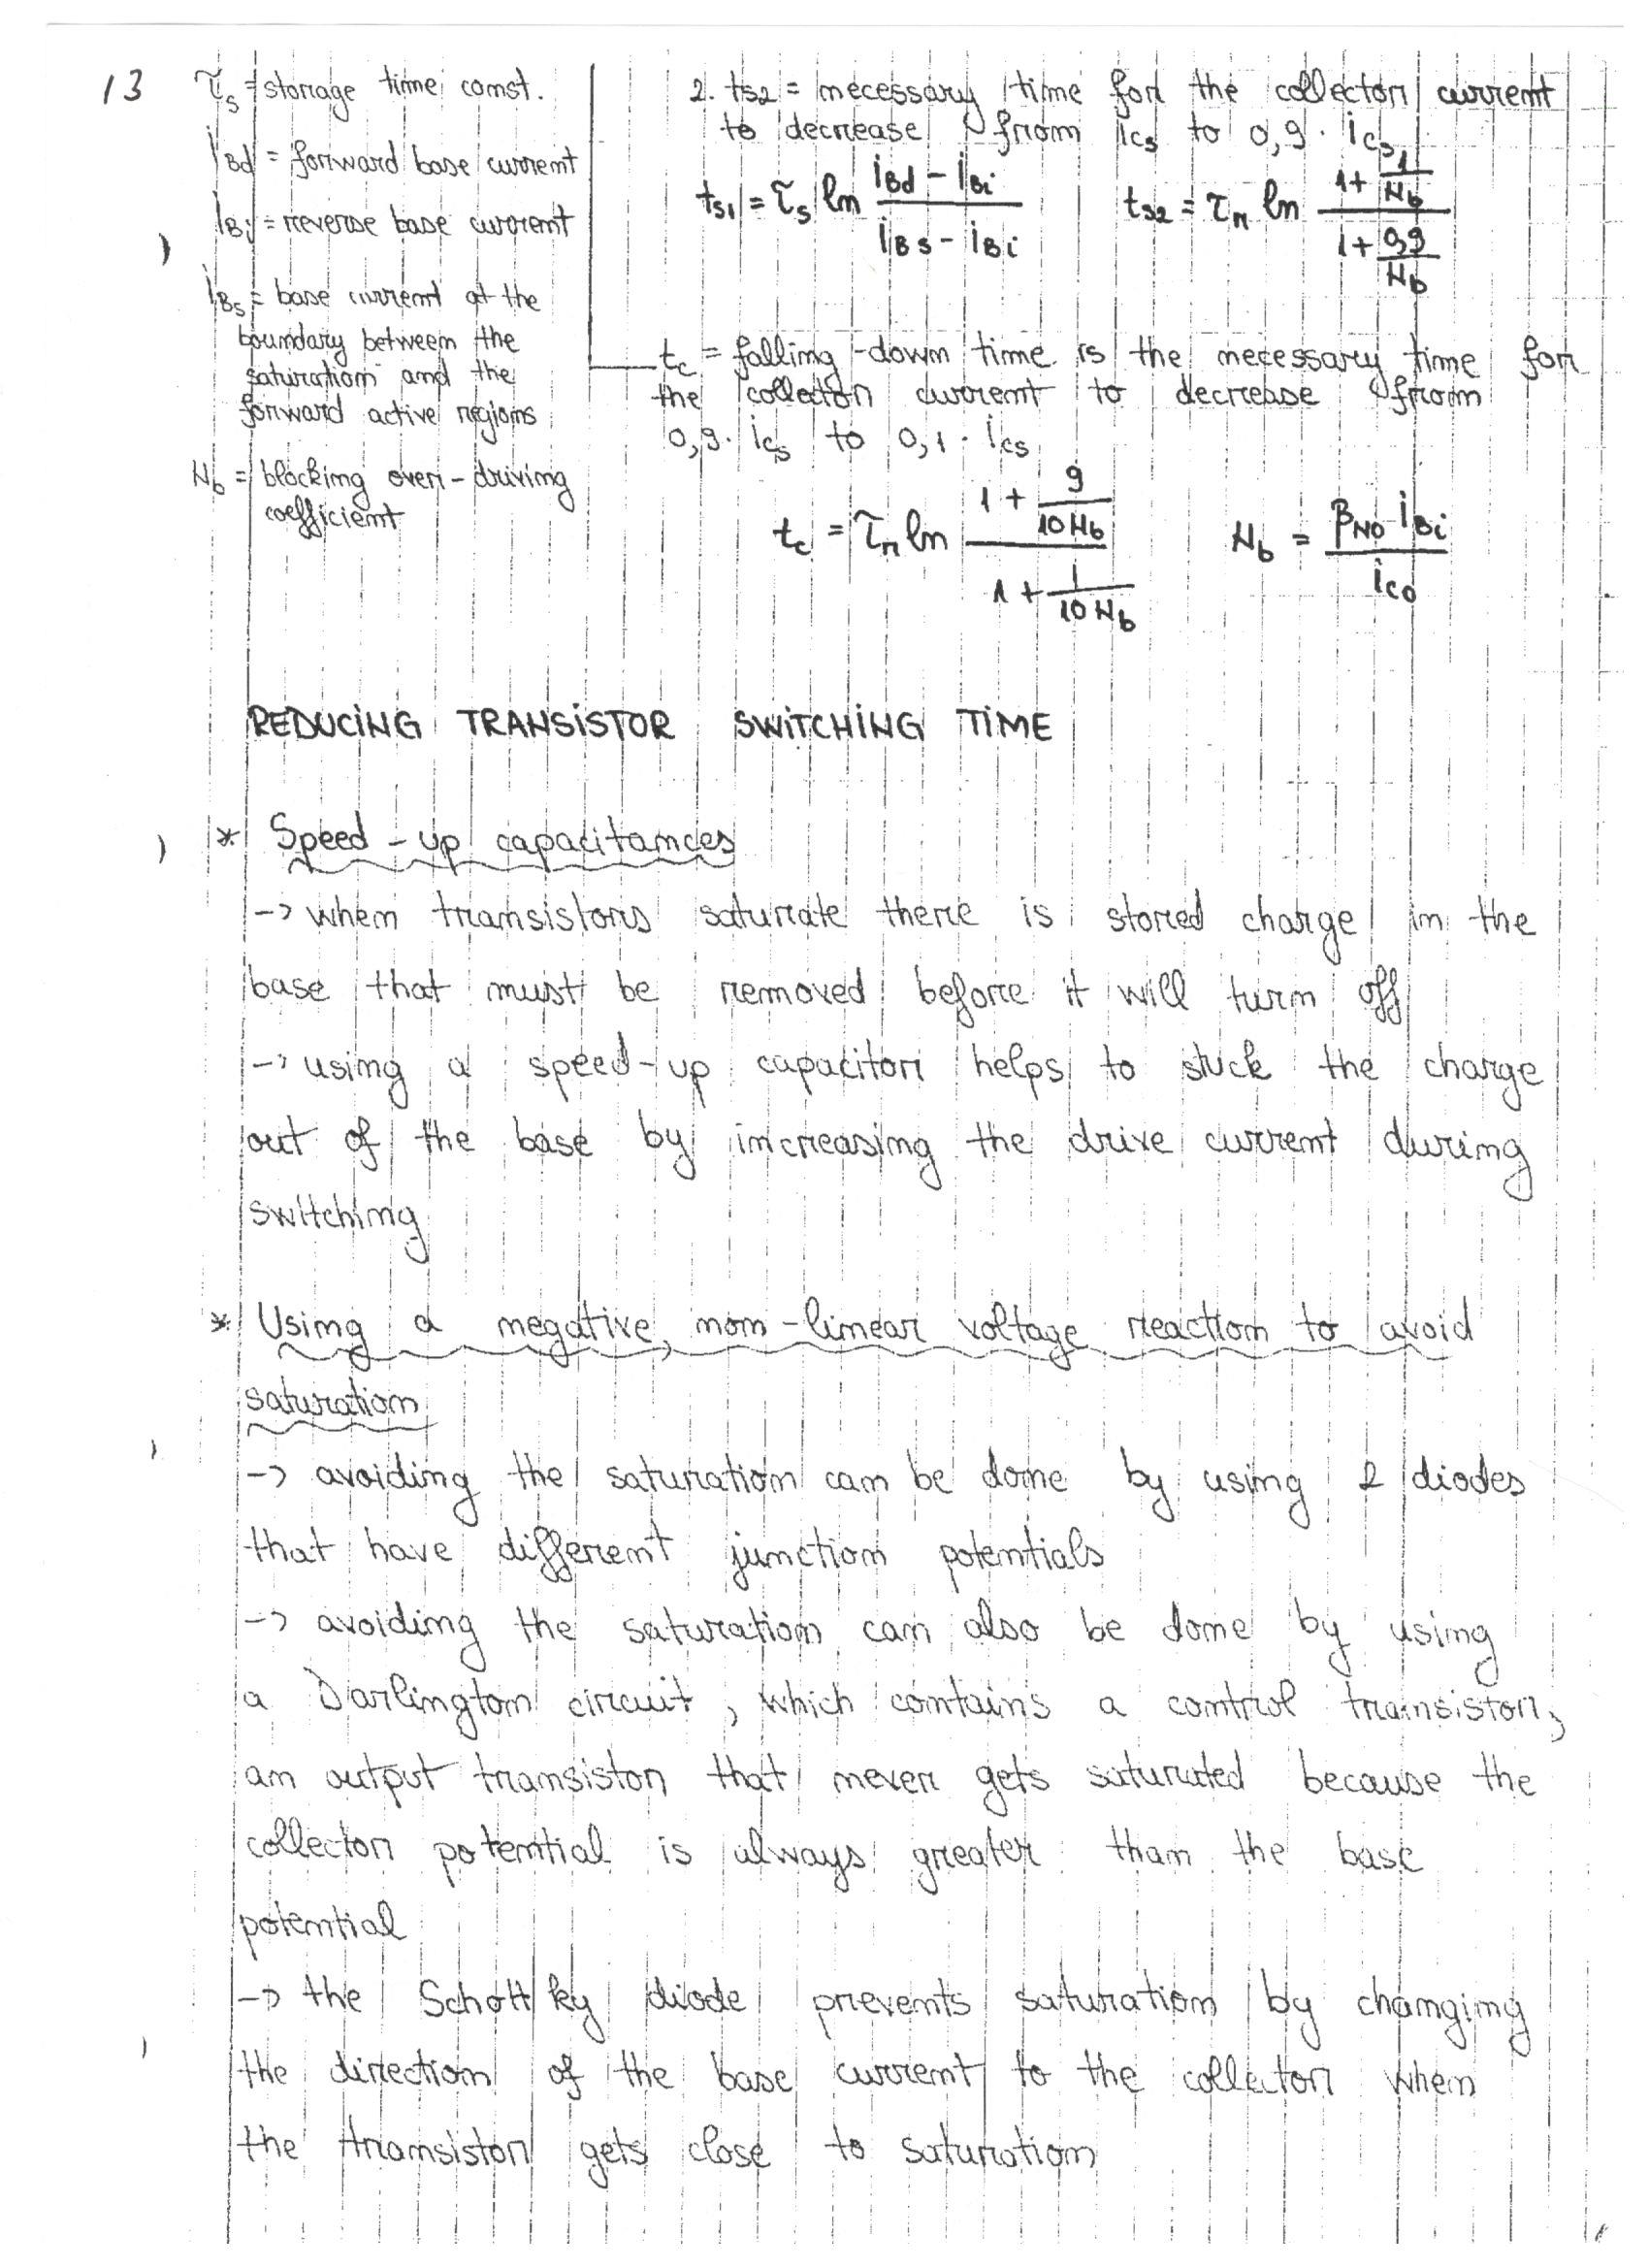 13
τs = storage time const.
iBd = forward base current
iBi = reverse base current
iBs = base current at the
boundary between the
saturation and the
forward active regions
Nb = blocking over-driving
coefficient
2. ts2 = necessary time for the collector current
to decrease from ics to 0,9 · ics
ts1 = τs ln (iBd - iBi)/(iBs - iBi) ts2 = τn ln (1 + 1/Nb)/(1 + 0,9/Nb)
tc = falling-down time is the necessary time for
the collector current to decrease from
0,9 · ics to 0,1 · ics
tc = τn ln (1 + 9/(10 Nb))/(1 + 1/(10 Nb)) Nb = (βN0 · iBi)/ic0
REDUCING TRANSISTOR SWITCHING TIME
* Speed-up capacitances
-> when transistors saturate there is stored charge in the
base that must be removed before it will turn off
-> using a speed-up capacitor helps to stuck the charge
out of the base by increasing the drive current during
switching
* Using a negative, non-linear voltage reaction to avoid
saturation
-> avoiding the saturation can be done by using 2 diodes
that have different junction potentials
-> avoiding the saturation can also be done by using
a Darlington circuit, which contains a control transistor,
an output transistor that never gets saturated because the
collector potential is always greater than the base
potential
-> the Schottky diode prevents saturation by changing
the direction of the base current to the collector when
the transistor gets close to saturation